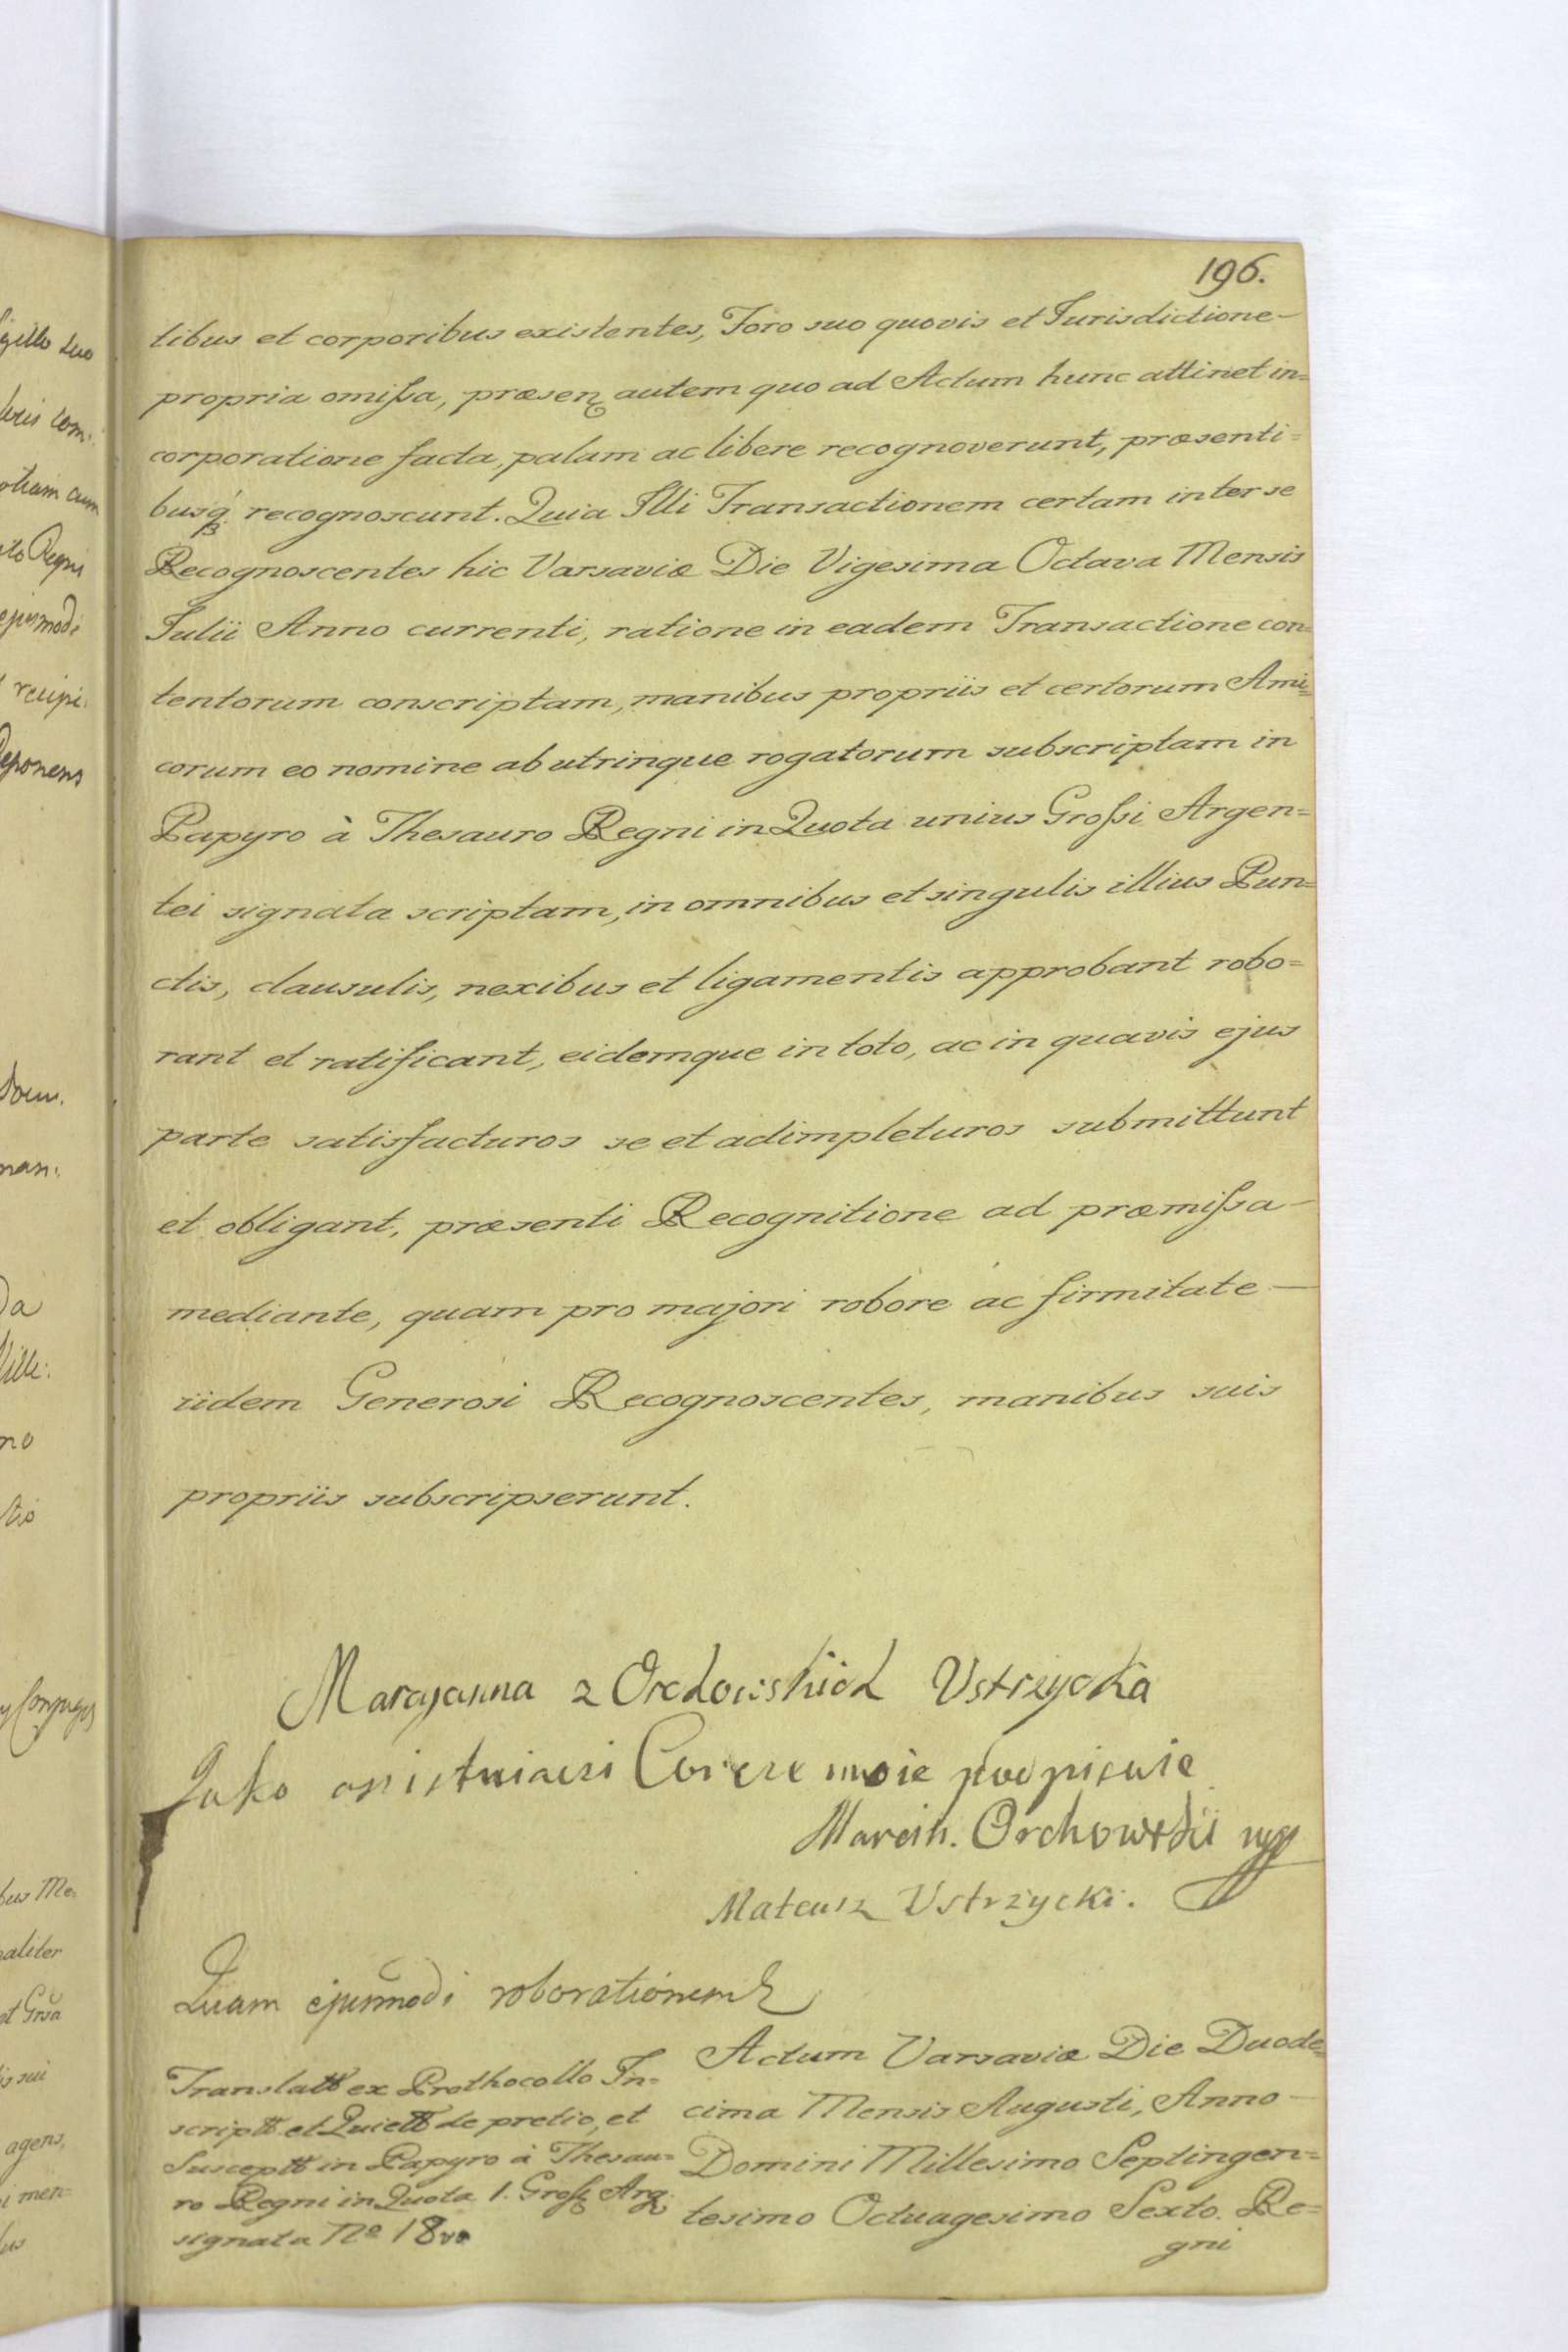 196.
tibus et corporibus existentes, Foro suo quovis et Jurisdictione-
propria omissa, præsen autem quo ad Actum hunc attinet in=
corporatione facta, palam ac libere recognoverunt, præsenti=
busq recognoscunt. Quia Illi Transactionem certam inter se
Recognoscentes hic Varsaviæ Die Vigesima Octava Mensis
Julii Anno currenti, ratione in eadem Transactione con=
tentorum conscriptam, manibus propriis et certorum Ami=
corum eo nomine ab utrinque rogatorum subscriptam in
Papyro à Thesauro Regni in Quota unius Grossi Argen=
tei signata scriptam, in omnibus et singulis illius Pun=
ctis, clausulis, nexibus et ligamentis approbant robo=
rant et ratificant, eidemque in toto, ac in quavis ejus
parte satisfacturos se et adimpleturos submittunt
et obligant, præsenti Recognitione ad præmissa-
mediante, quam pro majori robore ac firmitate-
iidem Generosi Recognoscentes, manibus suis
propriis subscripserunt.
Maryanna z Orchowskich Ustrzycka
Jako assistuiacy Corce moie podpisuie
Marcin. Orchowski mp
Mateusz Ustrzycki.
Quam ejusmodi roborationem
Translatt ex Prothocollo In=
scriptt et Quiett de pretio, et
Susceptt in Papyro à Thesau=
ro Regni in Quota 1. Gross Arg
signata No 18
Actum Varsaviæ Die Duode=
cima Mensis Augusti, Anno-
Domini Millesimo Septingen=
tesimo Octuagesimo Sexto. Re=
gni